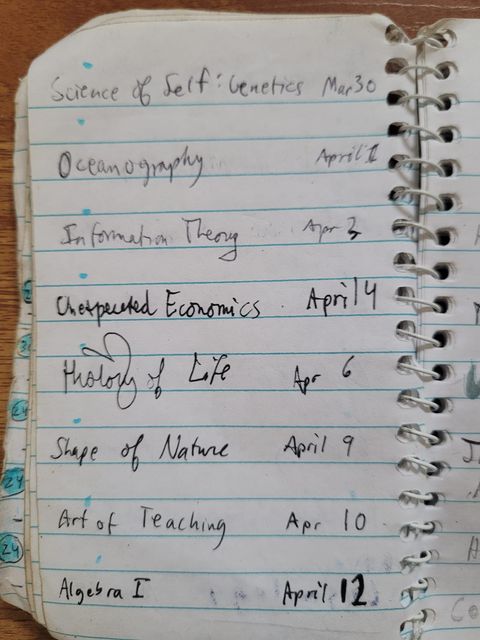 Science of Self: Genetics Mar 30
Oceanography April 1
Information Theory Apr 3
Unexpected Economics April 4
of Life Apr 6
Shape of Nature April 9
Art of Teaching Apr 10
Algebra I April 12
24
24
24